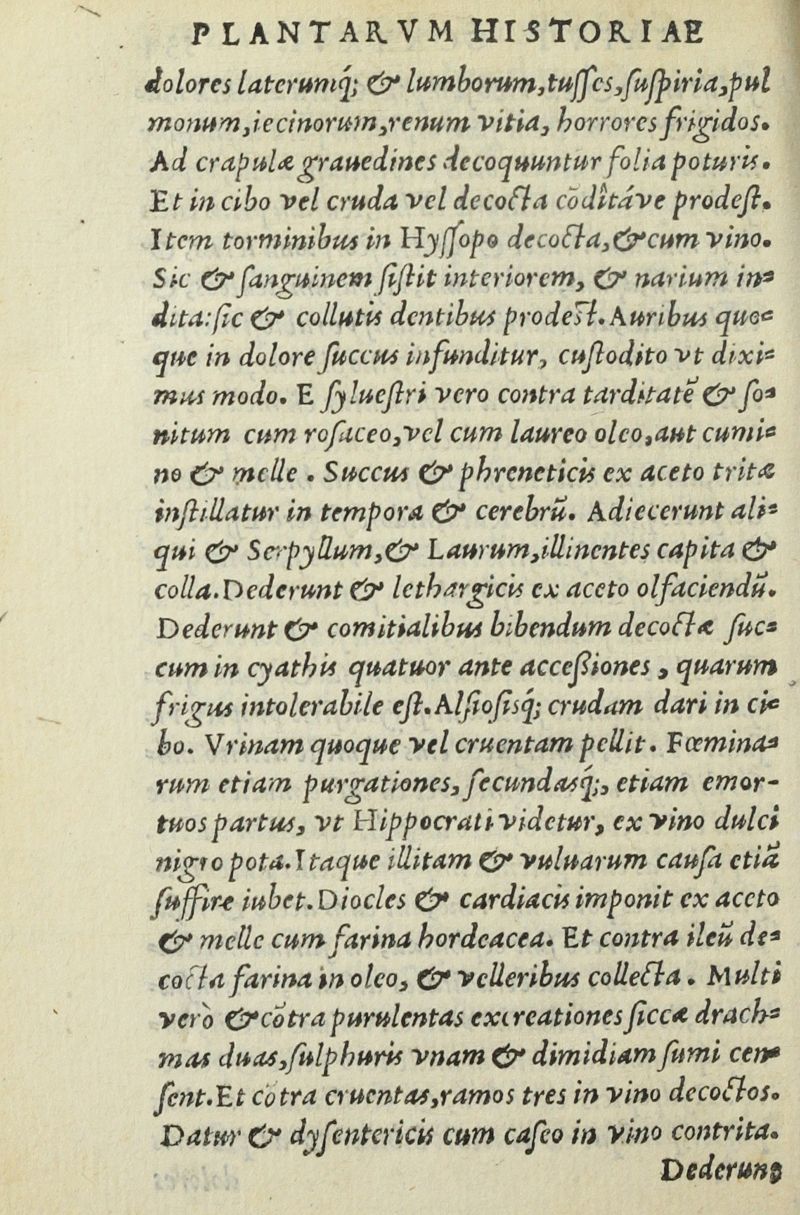 PLANTARVM HISTORIAE
dolores laterumq́; & lumborum,tuſſes,ſuſpiria,pul
monum,iecinorum,renum vitia, horrores frigidos.
Ad crapulæ grauedines decoquuntur folia poturis.
Et in cibo vel cruda vel decocta cōditáve prodeſt.
Item torminibus in Hyſſopo decocta,& cum vino.
Sic & ſanguinem ſiſtit interiorem, & narium in-
dita: ſic & collutis dentibus prodeſt. Auribus quo-
que in dolore ſuccus infunditur, cuſtodito vt dixi-
mus modo. E ſylueſtri vero contra tarditatē & ſo-
nitum cum roſaceo,vel cum laureo oleo,aut cumi-
no & melle . Succus & phreneticis ex aceto tritæ
inſtillatur in tempora & cerebrū. Adiecerunt ali-
qui & Serpyllum,& Laurum,illinentes capita &
colla. Dederunt & lethargicis ex aceto olfaciendū.
Dederunt & comitialibus bibendum decoctæ ſuc-
cum in cyathis quatuor ante acceſsiones , quarum
frigus intolerabile eſt. Alſioſisq́; crudam dari in ci-
bo. Vrinam quoque vel cruentam pellit. Fœmina-
rum etiam purgationes, ſecundasq́;, etiam emor-
tuos partus, vt Hippocrati videtur, ex vino dulci
nigro pota. Itaque illitam & vuluarum cauſa etiā
ſuffire iubet. Diocles & cardiacis imponit ex aceto
& melle cum farina hordeacea. Et contra ileū de-
cocta farina in oleo, & velleribus collecta . Multi
vero & cōtra purulentas excreationes ſiccæ drach-
mas duas,ſulphuris vnam & dimidiam ſumi cen-
ſent. Et cōtra cruentas,ramos tres in vino decoctos.
Datur & dyſentericis cum caſeo in vino contrita.
Dederunt